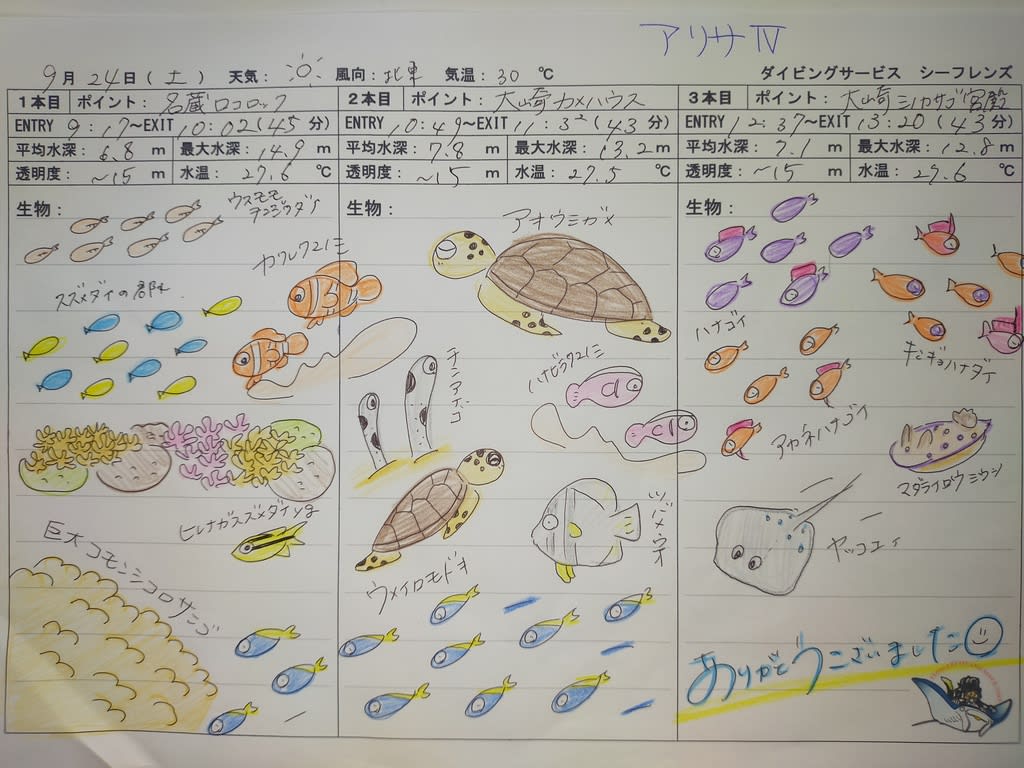 アリサⅣ
9月24日(土) 天気: 風向:北東 気温:30℃ ダイビングサービス シーフレンズ
1本目 ポイント:名蔵ロコロック
ENTRY 9:17~EXIT 10:02(45分)
平均水深:6.8m 最大水深:14.9m
透明度:~15m 水温:27.6℃
生物:
ウスモモテンジクダイ
カクレクマノミ
スズメダイの群れ
ヒレナガスズメダイyg
巨大コモンシコロサンゴ
2本目 ポイント:大崎カメハウス
ENTRY 10:49~EXIT 11:32(43分)
平均水深:7.8m 最大水深:13.2m
透明度:~15m 水温:27.5℃
生物:
アオウミガメ
チンアナゴ
ハナビラクマノミ
ツバメウオ
ウメイロモドキ
3本目 ポイント:大崎ハナゴイ宮殿
ENTRY 12:37~EXIT 13:20(43分)
平均水深:7.1m 最大水深:12.8m
透明度:~15m 水温:27.6℃
生物:
ハナゴイ
キンギョハナダイ
アカネハナゴイ
マダライロウミウシ
ヤッコエイ
ありがとうございました